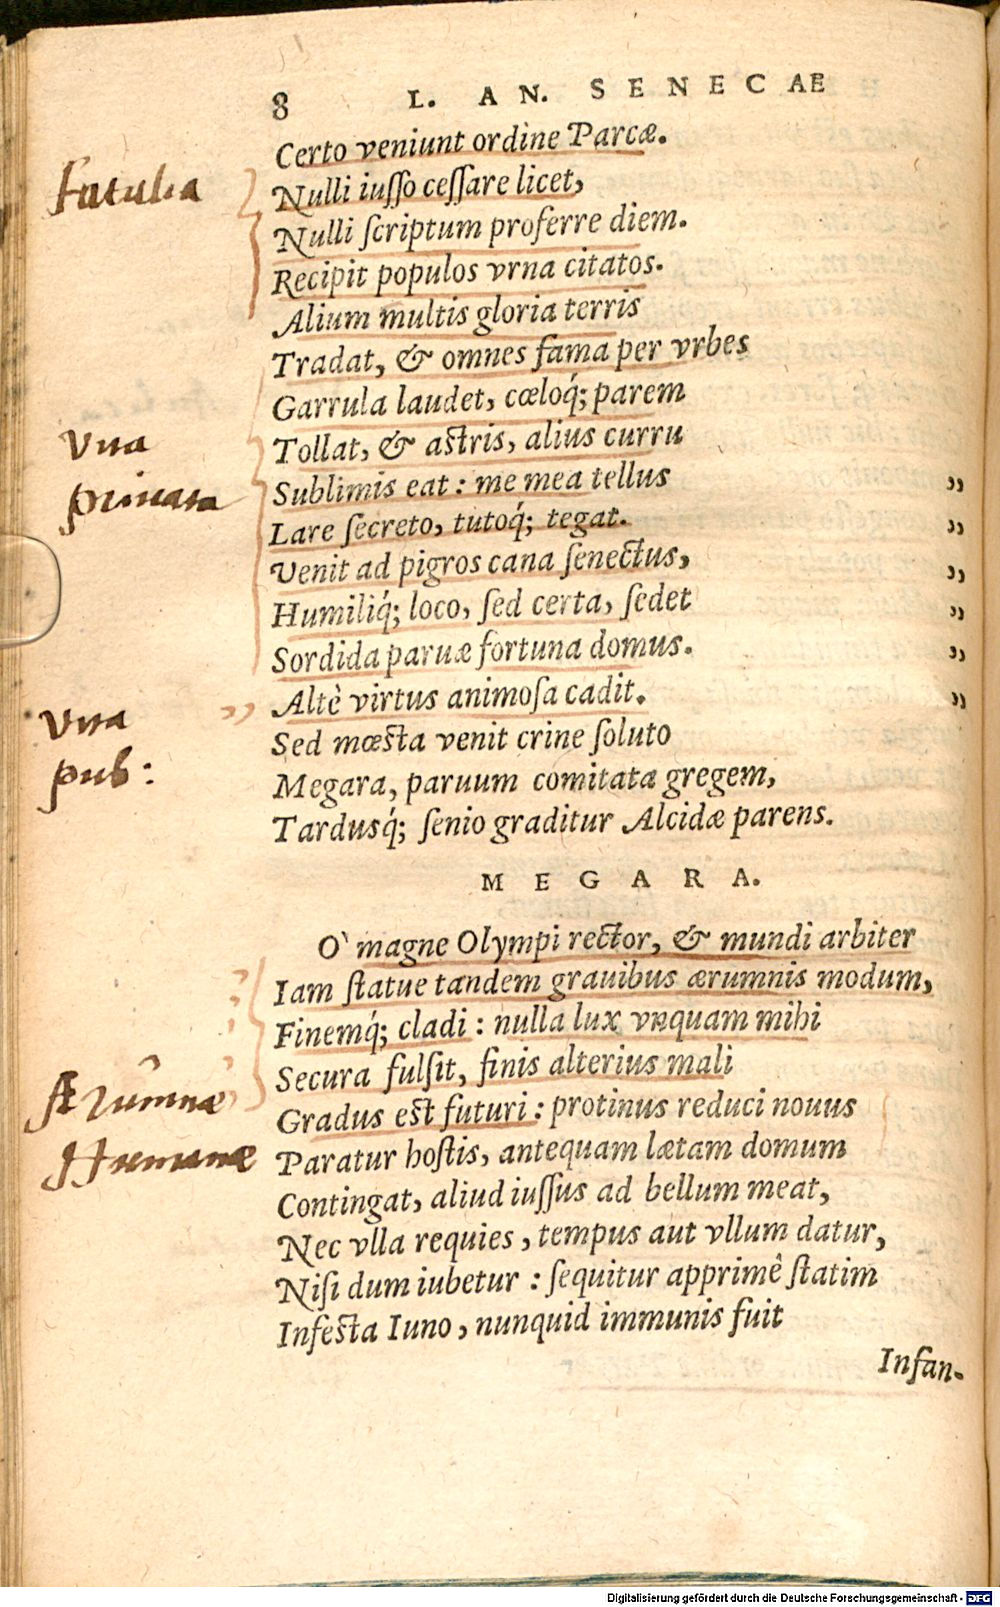 8 L. AN. SENECAE
Certo veniunt ordine Parcæ.
Fatalia
Nulli iuſſo ceſſare licet,
Nulli ſcriptum proferre diem.
Recipit populos vrna citatos.
Alium multis gloria terris
Tradat, & omnes fama per vrbes
Garrula laudet, cœloq́; parem
Vita
Tollat, & aſtris, alius curru
priuata
Sublimis eat: me mea tellus „
Lare ſecreto, tutoq́; tegat. „
Venit ad pigros cana ſenectus, „
Humiliq́; loco, ſed certa, ſedet „
Sordida paruæ fortuna domus. „
Vita
„ Altè virtus animoſa cadit. „
Sed mœſta venit crine ſoluto
pub:
Megara, paruum comitata gregem,
Tardusq́; ſenio graditur Alcidæ parens.
MEGARA.
O` magne Olympi rector, & mundi arbiter
Iam ſtatue tandem grauibus ærumnis modum,
Finemq́; cladi: nulla lux vnquam mihi
Secura fulſit, finis alterius mali
Ærumnæ
Gradus eſt futuri: protinus reduci nouus
Humanæ
Paratur hoſtis, antequam lætam domum
Contingat, aliud iuſſus ad bellum meat,
Nec vlla requies, tempus aut vllum datur,
Niſi dum iubetur: ſequitur apprimê ſtatim
Infeſta Iuno, nunquid immunis fuit
Infan-
Digitalisierung gefördert durch die Deutsche Forschungsgemeinschaft - DFG